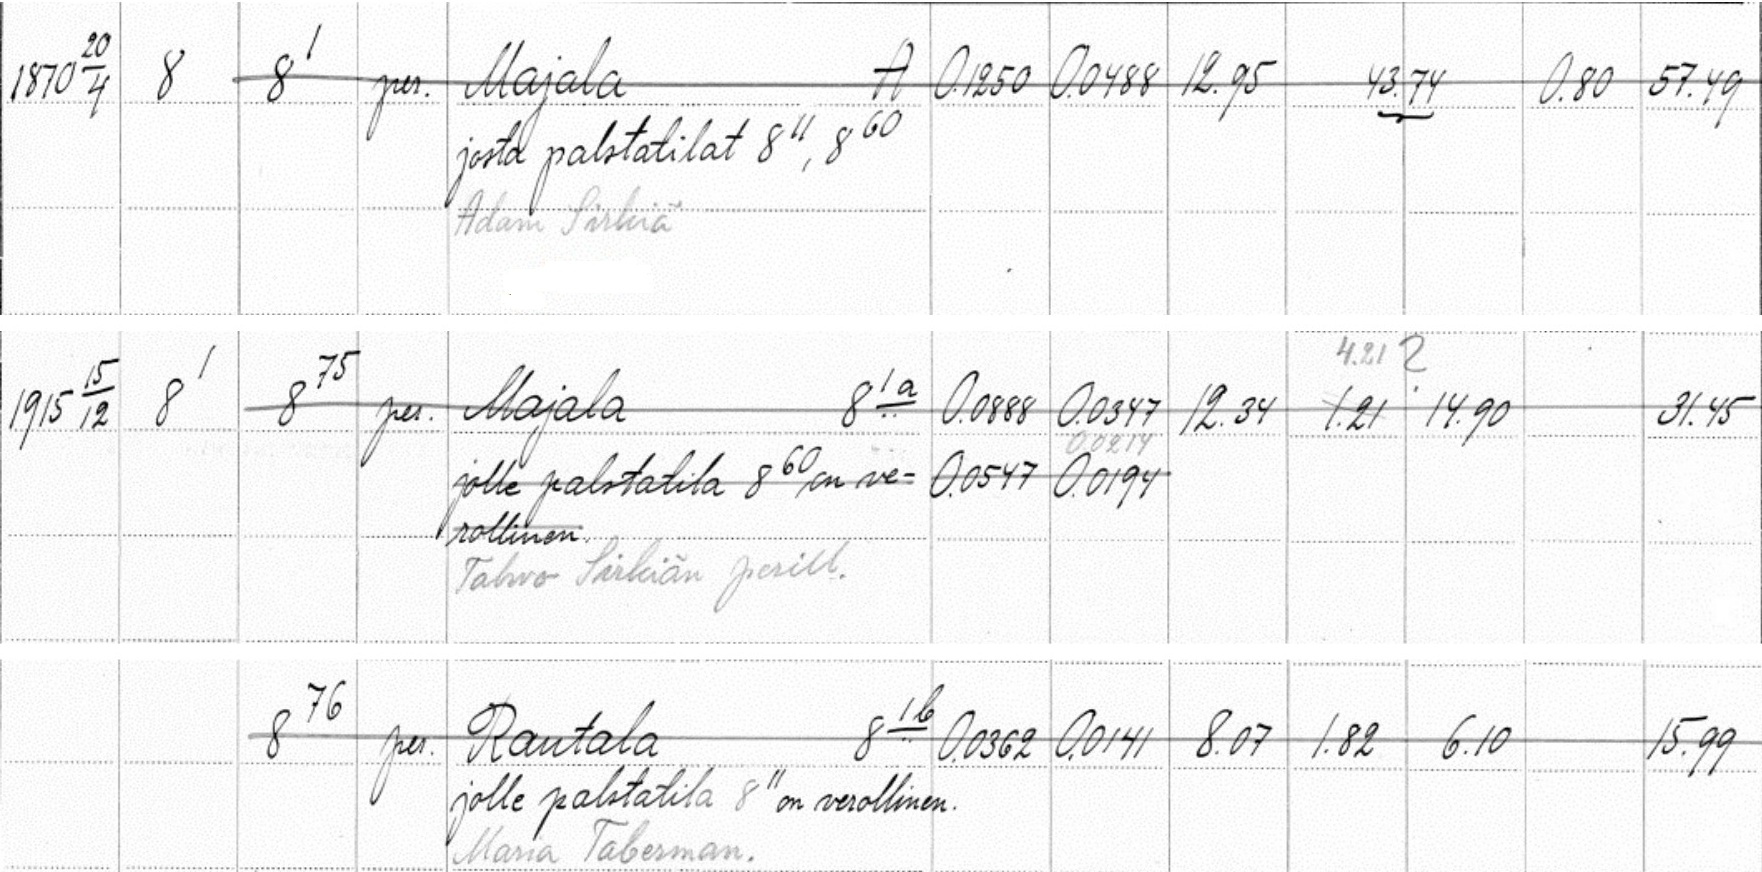 1870 20/4 8 8¹ per. Majala A 0.1250 0.0488 12.95 43.74 0.80 57.49
josta palstatilat 8¹¹, 8⁶⁰
Adam Sirkiä
4.21 ?
1915 15/12 8¹ 8⁷⁵ per. Majala 8¹ᵃ 0.0888 0.0347 12.34 1.21 14.90 31.45
0.0214
jolle palstatila 8⁶⁰ on ve= 0.0547 0.0194
rollinen.
Tahvo Sirkiän perill.
8⁷⁶ per. Rautala 8¹ᵇ 0.0362 0.0141 8.07 1.82 6.10 15.99
jolle palstatila 8¹¹ on verollinen.
Maria Taberman.